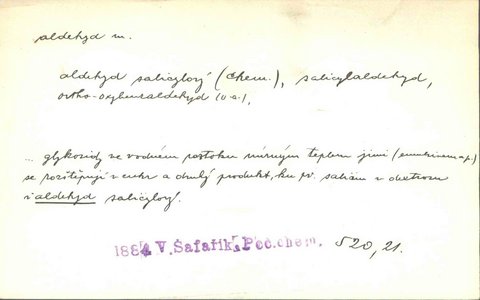 aldehyd m.
aldehyd salicylový (chem.), salicylaldehyd,
ortho-oxybenzaldehyd (u a.),
... glykosidy ve vodném roztoku mírným teplem jimi (emulsinem a p.)
se rozštěpují v cukr a druhý produkt, ku př. salicin v dextrosu
i aldehyd salicylový.
1884 V. Šafařík, Poč. chem. 520, 21.